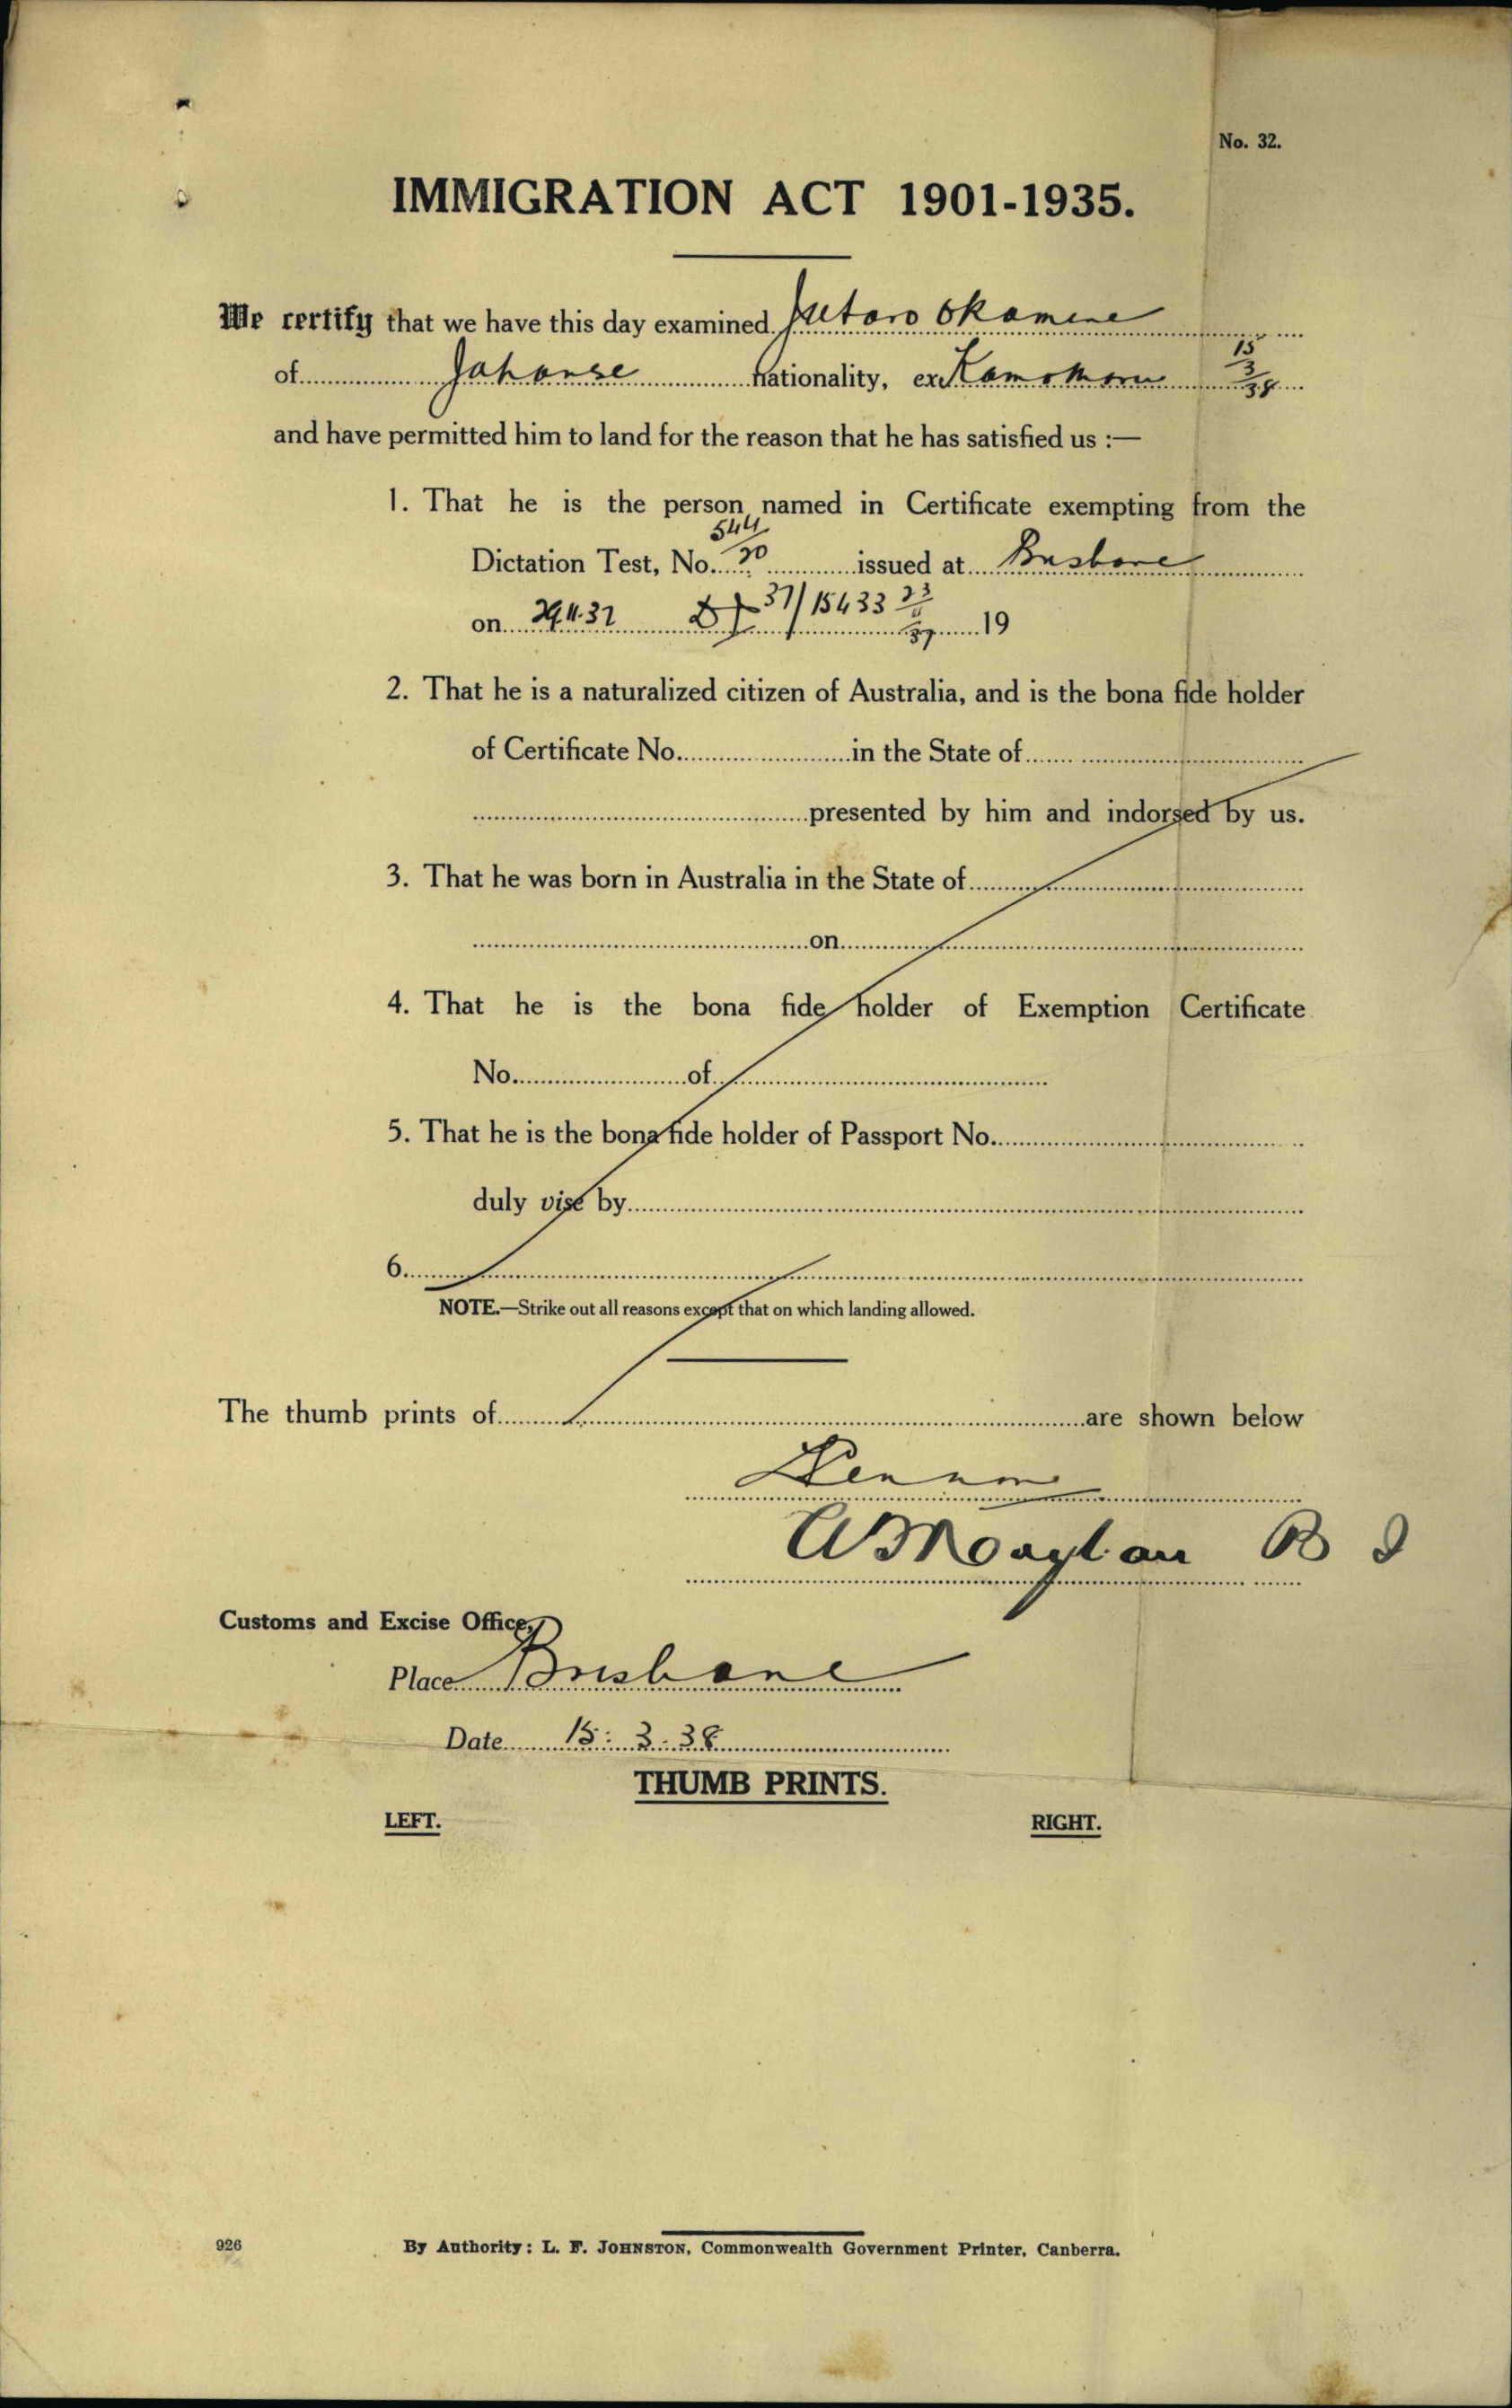 No. 32.
IMMIGRATION ACT 1901-1935.
We certify that we have this day examined Jutaro Okamine
of Japanse nationality, ex Kamo Maru 15/3/38
and have permitted him to land for the reason that he has satisfied us :—
1. That he is the person named in Certificate exempting from the
Dictation Test, No. 544/20 issued at Brisbane
on 29.11.37 37/15433 23/11/37 19
2. That he is a naturalized citizen of Australia, and is the bona fide holder
of Certificate No. in the State of
presented by him and indorsed by us.
3. That he was born in Australia in the State of
on
4. That he is the bona fide holder of Exemption Certificate
No. of
5. That he is the bona fide holder of Passport No.
duly visé by
6.
NOTE.—Strike out all reasons except that on which landing allowed.
The thumb prints of are shown below
Customs and Excise Office,
Place Brisbane
Date 15: 3: 38
THUMB PRINTS.
LEFT. RIGHT.
926 By Authority: L. F. JOHNSTON, Commonwealth Government Printer, Canberra.